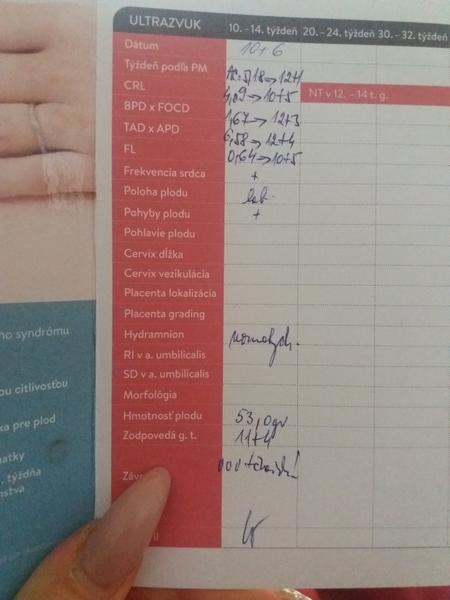 ULTRAZVUK 10. - 14. týždeň 20. - 24. týždeň 30. - 32. týždeň
Dátum
Týždeň podľa PM 10+6
CRL 5,18→12+1
NT v 12. - 14 t. g.
BPD x FOCD 4,09→10+5
TAD x APD 1,67→12+3
FL 6,58→12+4
0,64→10+5
Frekvencia srdca +
Poloha plodu
Pohyby plodu +
Pohlavie plodu
Cervix dĺžka
Cervix vezikulácia
Placenta lokalizácia
Placenta grading
Hydramnion
RI v a. umbilicalis
SD v a. umbilicalis
Morfológia
Hmotnosť plodu 53,0gr
Zodpovedá g. t. 11+4
ho syndrómu
ou citlivosťou
ka pre plod
matky
. týždňa